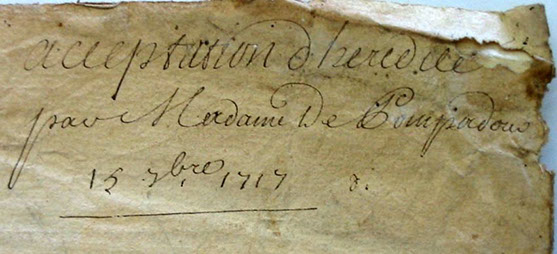 acceptation d'heredité
par Madame De Pompadour
15 7bre 1717